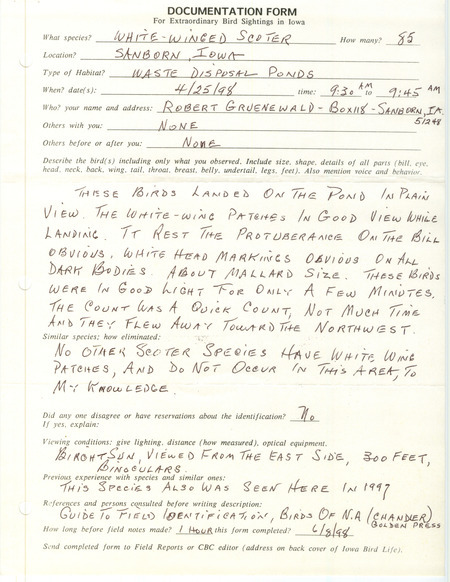 DOCUMENTATION FORM
For Extraordinary Bird Sightings in Iowa
What species? WHITE-WINGED SCOTER How many? 85
Location? SANBORN, IOWA
Type of Habitat? WASTE DISPOSAL PONDS
When? date(s): 4/25/98 time: 9:30 AM to 9:45 AM
Who? your name and address: ROBERT GRUENEWALD - BOX 118 - SANBORN, IA. 51248
Others with you: NONE
Others before or after you: NONE
Describe the bird(s) including only what you observed. Include size, shape, details of all parts (bill, eye,
head, neck, back, wing, tail, throat, breast, belly, undertail, legs, feet). Also mention voice and behavior.
THESE BIRDS LANDED ON THE POND IN PLAIN
VIEW. THE WHITE-WING PATCHES IN GOOD VIEW WHILE
LANDING. IT REST THE PROTUBERANCE ON THE BILL
OBVIOUS. WHITE HEAD MARKINGS OBVIOUS ON ALL
DARK BODIES. ABOUT MALLARD SIZE. THESE BIRDS
WERE IN GOOD LIGHT FOR ONLY A FEW MINUTES.
THE COUNT WAS A QUICK COUNT, NOT MUCH TIME
AND THEY FLEW AWAY TOWARD THE NORTHWEST.
Similar species; how eliminated:
NO OTHER SCOTER SPECIES HAVE WHITE WING
PATCHES, AND DO NOT OCCUR IN THIS AREA, TO
MY KNOWLEDGE.
Did any one disagree or have reservations about the identification? No
If yes, explain:
Viewing conditions: give lighting, distance (how measured), optical equipment.
BIRGHT SUN, VIEWED FROM THE EAST SIDE, 300 FEET,
BINOCULARS.
Previous experience with species and similar ones:
THIS SPECIES ALSO WAS SEEN HERE IN 1997
References and persons consulted before writing description:
GUIDE TO FIELD IDENTIFICATION, BIRDS OF N.A (CHANDLER) GOLDEN PRESS
How long before field notes made? 1 HOUR this form completed? 6/8/98
Send completed form to Field Reports or CBC editor (address on back cover of Iowa Bird Life).